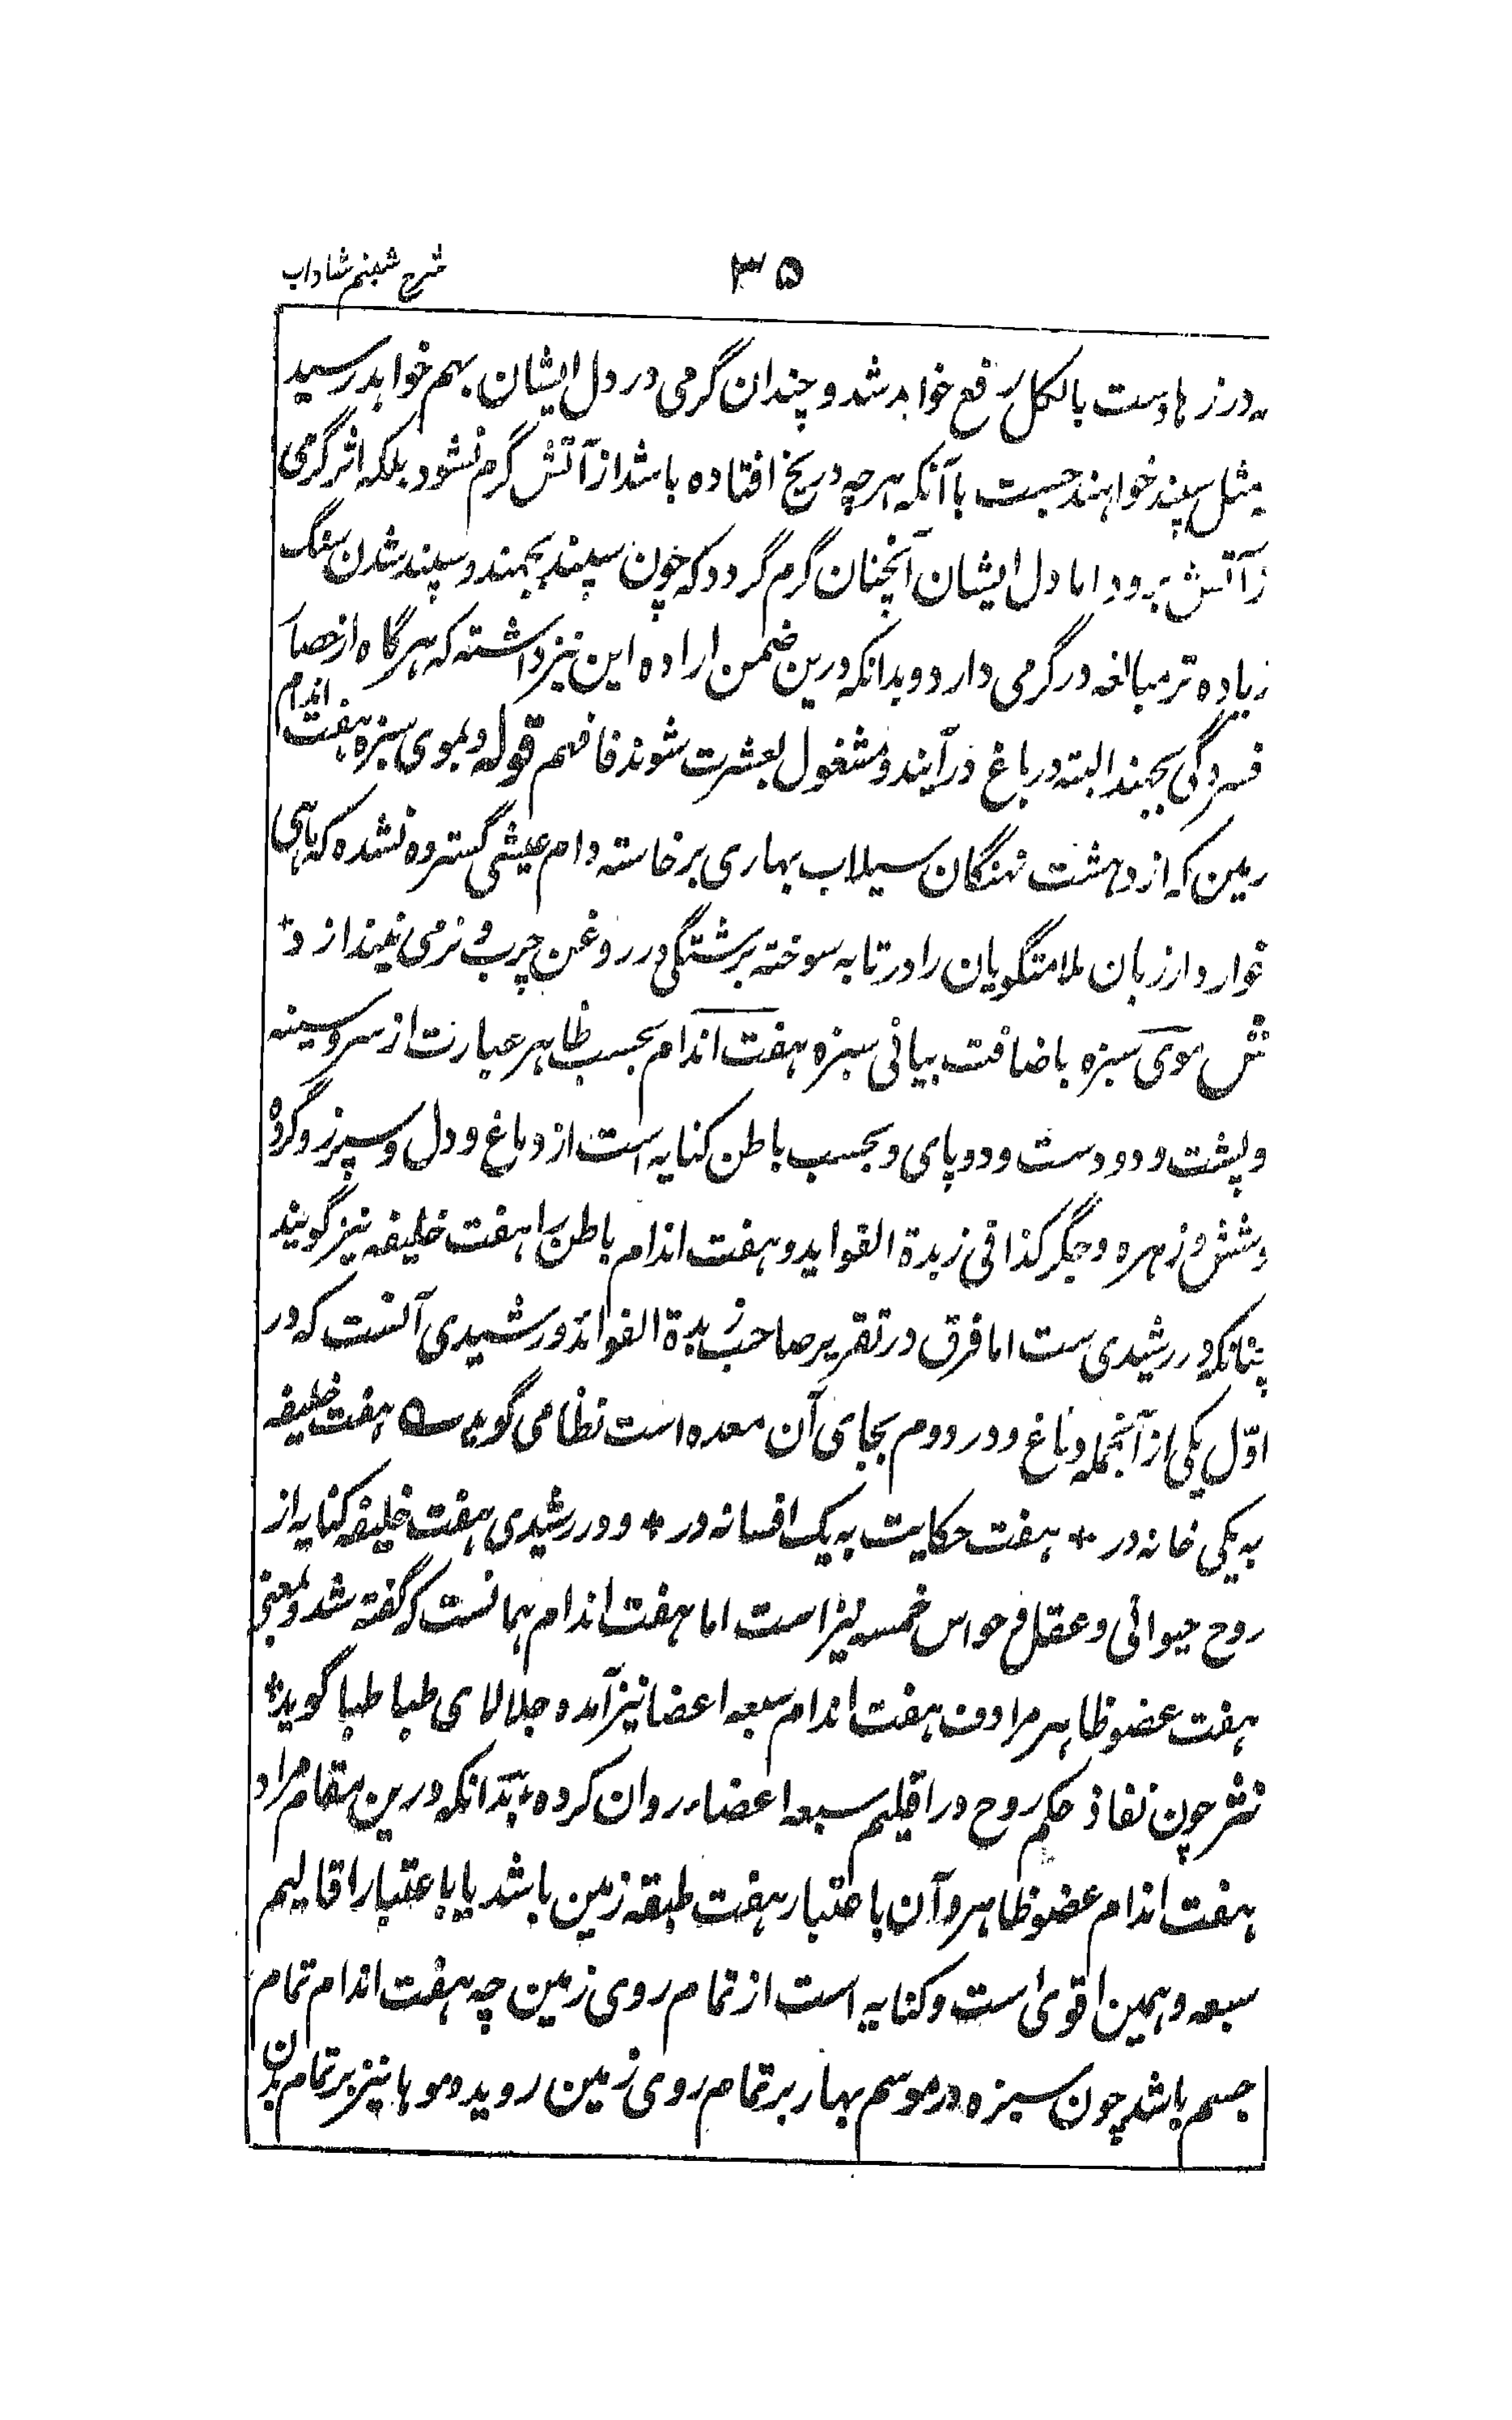 شرح شبنم شاداب
۳۵
در رزهاوست بالکل رفع خواهد شد و چندان گرمی در دل ایشان بهم خواهد رسید
مثل سپند خواهند جست با آنکه هرچه در یخ افتاده باشد از آتش گرم نشود بلکه اثر گرمی
ز آتش برود اما دل ایشان آنچنان گرم گردد که چون سپند بجهند و سپند شدن سنگ
زیاده تر مبالغه در گرمی دارد و بدانکه درین ضمن اراده این نیز داشته که هرگاه از حصا
فسردگی بجهند البته در باغ درآیند و مشغول بعشرت شوند فافهم قوله و بموی سبزه هفت اندام
زمین که از دهشت نهنگان سیلاب بهاری برخاسته دام عیشی گسترده نشده که ماهی
خوار دار زبان ملامتگویان را در تابه سوخته برشتگی در روغن چرب و نرمی نیندازد*
ش موی سبزه باضافت بیانی سبزه هفت اندام بحسب ظاهر عبارت از سر و سینه
و پشت و دو دست و دو پای و بحسب باطن کنایه است از دماغ و دل و سپرز و گرده
و شش و زهره و جگر کذا فی زبدة الفواید و هفت اندام باطن را هفت خلیفه نیز گویند
چنانکه در رشیدی ست اما فرق در تقریر صاحب زبدة الفوائد و رشیدی آنست که در
اول یکی از آنجمله دماغ و در دوم بجای آن معده است نظامی گوید ؎ هفت خلیفه
به یکی خانه در * هفت حکایت به یک افسانه در * و در رشیدی هفت خلیفه کنایه از
روح حیوانی و عقل و حواس خمسه نیز است اما هفت اندام همانست که گفته شد و بمعنی
هفت عضو ظاهر مرادف هفت اندام سبعه اعضا نیز آمده و جلالای طباطبا گوید*
نثر چون نفاذ حکم روح در اقلیم سبعه اعضاء روان کرده، بدانکه درین مقام مراد
هفت اندام عضو ظاهر و آن باعتبار هفت طبقه زمین باشد یا باعتبار اقالیم
سبعه و همین اقوی است و کنایه است از تمام روی زمین چه هفت اندام تمام
جسم باشد چون سبزه در موسم بهار بر تمام روی زمین روید و موها نیز بر تمام بدن